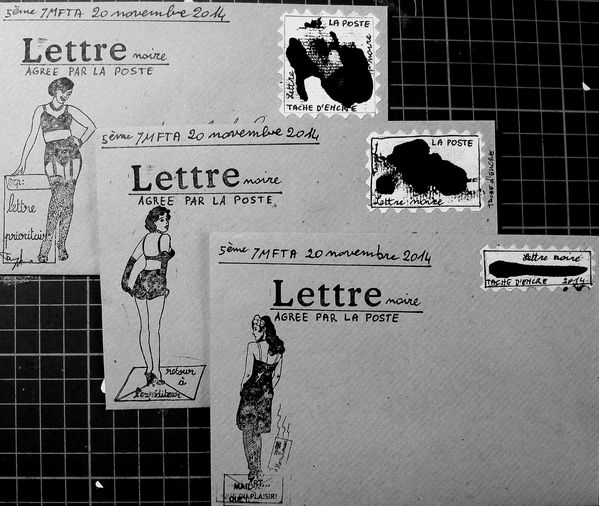 5ème 7MFTA 20 novembre 2014
Lettre noire
AGREE PAR LA POSTE
LA POSTE
Lettre noire
TACHE D'ENCRE
lettre
prioritaire
5ème 7MFTA 20 novembre 2014
Lettre noire
AGREE PAR LA POSTE
LA POSTE
Lettre noire
TACHE D'ENCRE
retour
à
l'expéditeur
5ème 7MFTA 20 novembre 2014
Lettre noire
AGREE PAR LA POSTE
Lettre noire
TACHE D'ENCRE 2014
MAIL ART...
QUE DU PLAISIR!